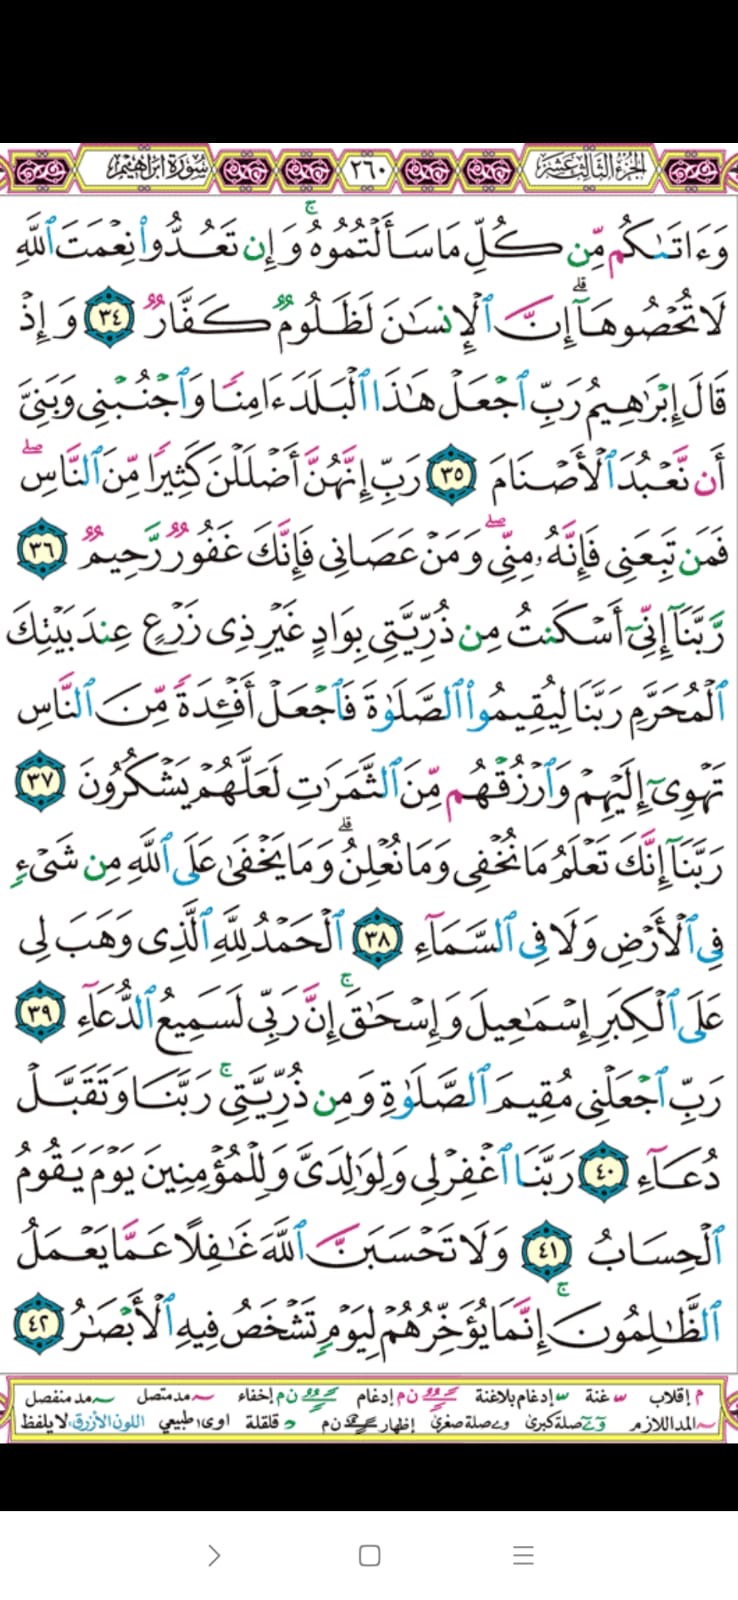 الجزء الثالث عشر ٢٦٠ سورة إبراهيم
وَءَاتَىٰكُم مِّن كُلِّ مَا سَأَلْتُمُوهُ ۚ وَإِن تَعُدُّوا۟ نِعْمَتَ ٱللَّهِ
لَا تُحْصُوهَآ ۗ إِنَّ ٱلْإِنسَـٰنَ لَظَلُومٌ كَفَّارٌ ٣٤ وَإِذْ
قَالَ إِبْرَٰهِيمُ رَبِّ ٱجْعَلْ هَـٰذَا ٱلْبَلَدَ ءَامِنًا وَٱجْنُبْنِى وَبَنِىَّ
أَن نَّعْبُدَ ٱلْأَصْنَامَ ٣٥ رَبِّ إِنَّهُنَّ أَضْلَلْنَ كَثِيرًا مِّنَ ٱلنَّاسِ ۖ
فَمَن تَبِعَنِى فَإِنَّهُۥ مِنِّى ۖ وَمَنْ عَصَانِى فَإِنَّكَ غَفُورٌ رَّحِيمٌ ٣٦
رَّبَّنَآ إِنِّىٓ أَسْكَنتُ مِن ذُرِّيَّتِى بِوَادٍ غَيْرِ ذِى زَرْعٍ عِندَ بَيْتِكَ
ٱلْمُحَرَّمِ رَبَّنَا لِيُقِيمُوا۟ ٱلصَّلَوٰةَ فَٱجْعَلْ أَفْـِٔدَةً مِّنَ ٱلنَّاسِ
تَهْوِىٓ إِلَيْهِمْ وَٱرْزُقْهُم مِّنَ ٱلثَّمَرَٰتِ لَعَلَّهُمْ يَشْكُرُونَ ٣٧
رَبَّنَآ إِنَّكَ تَعْلَمُ مَا نُخْفِى وَمَا نُعْلِنُ ۗ وَمَا يَخْفَىٰ عَلَى ٱللَّهِ مِن شَىْءٍ
فِى ٱلْأَرْضِ وَلَا فِى ٱلسَّمَآءِ ٣٨ ٱلْحَمْدُ لِلَّهِ ٱلَّذِى وَهَبَ لِى
عَلَى ٱلْكِبَرِ إِسْمَـٰعِيلَ وَإِسْحَـٰقَ ۚ إِنَّ رَبِّى لَسَمِيعُ ٱلدُّعَآءِ ٣٩
رَبِّ ٱجْعَلْنِى مُقِيمَ ٱلصَّلَوٰةِ وَمِن ذُرِّيَّتِى ۚ رَبَّنَا وَتَقَبَّلْ
دُعَآءِ ٤٠ رَبَّنَا ٱغْفِرْ لِى وَلِوَٰلِدَىَّ وَلِلْمُؤْمِنِينَ يَوْمَ يَقُومُ
ٱلْحِسَابُ ٤١ وَلَا تَحْسَبَنَّ ٱللَّهَ غَـٰفِلًا عَمَّا يَعْمَلُ
ٱلظَّـٰلِمُونَ ۚ إِنَّمَا يُؤَخِّرُهُمْ لِيَوْمٍ تَشْخَصُ فِيهِ ٱلْأَبْصَـٰرُ ٤٢
م إقلاب غنة إدغام بلاغنة ن م إدغام ن م إخفاء مد متصل مد منفصل
المد اللازم صلة كبرى صلة صغرى إظهار ن م قلقلة اوى طبيعي اللون الأزرق لا يلفظ